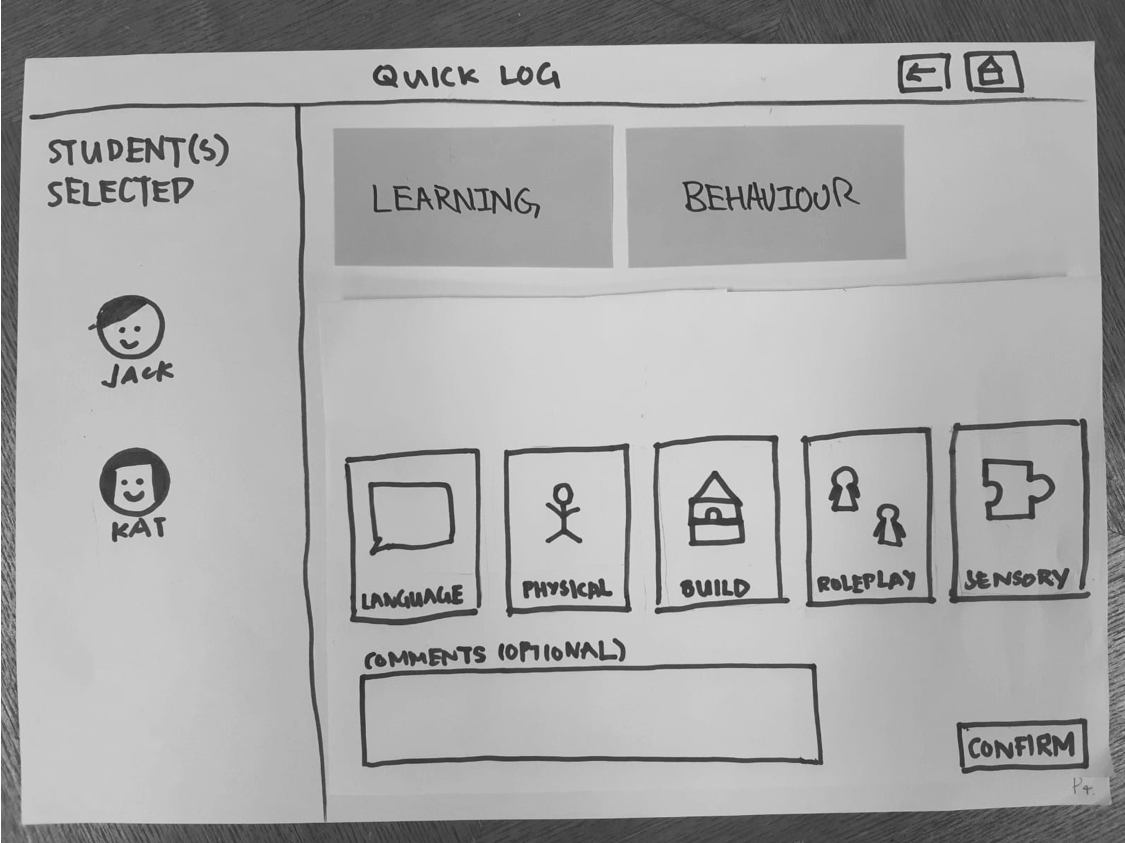 QUICK LOG
STUDENT(S)
SELECTED
JACK
KAT
LEARNING
BEHAVIOUR
LANGUAGE
PHYSICAL
BUILD
ROLEPLAY
SENSORY
COMMENTS (OPTIONAL)
CONFIRM